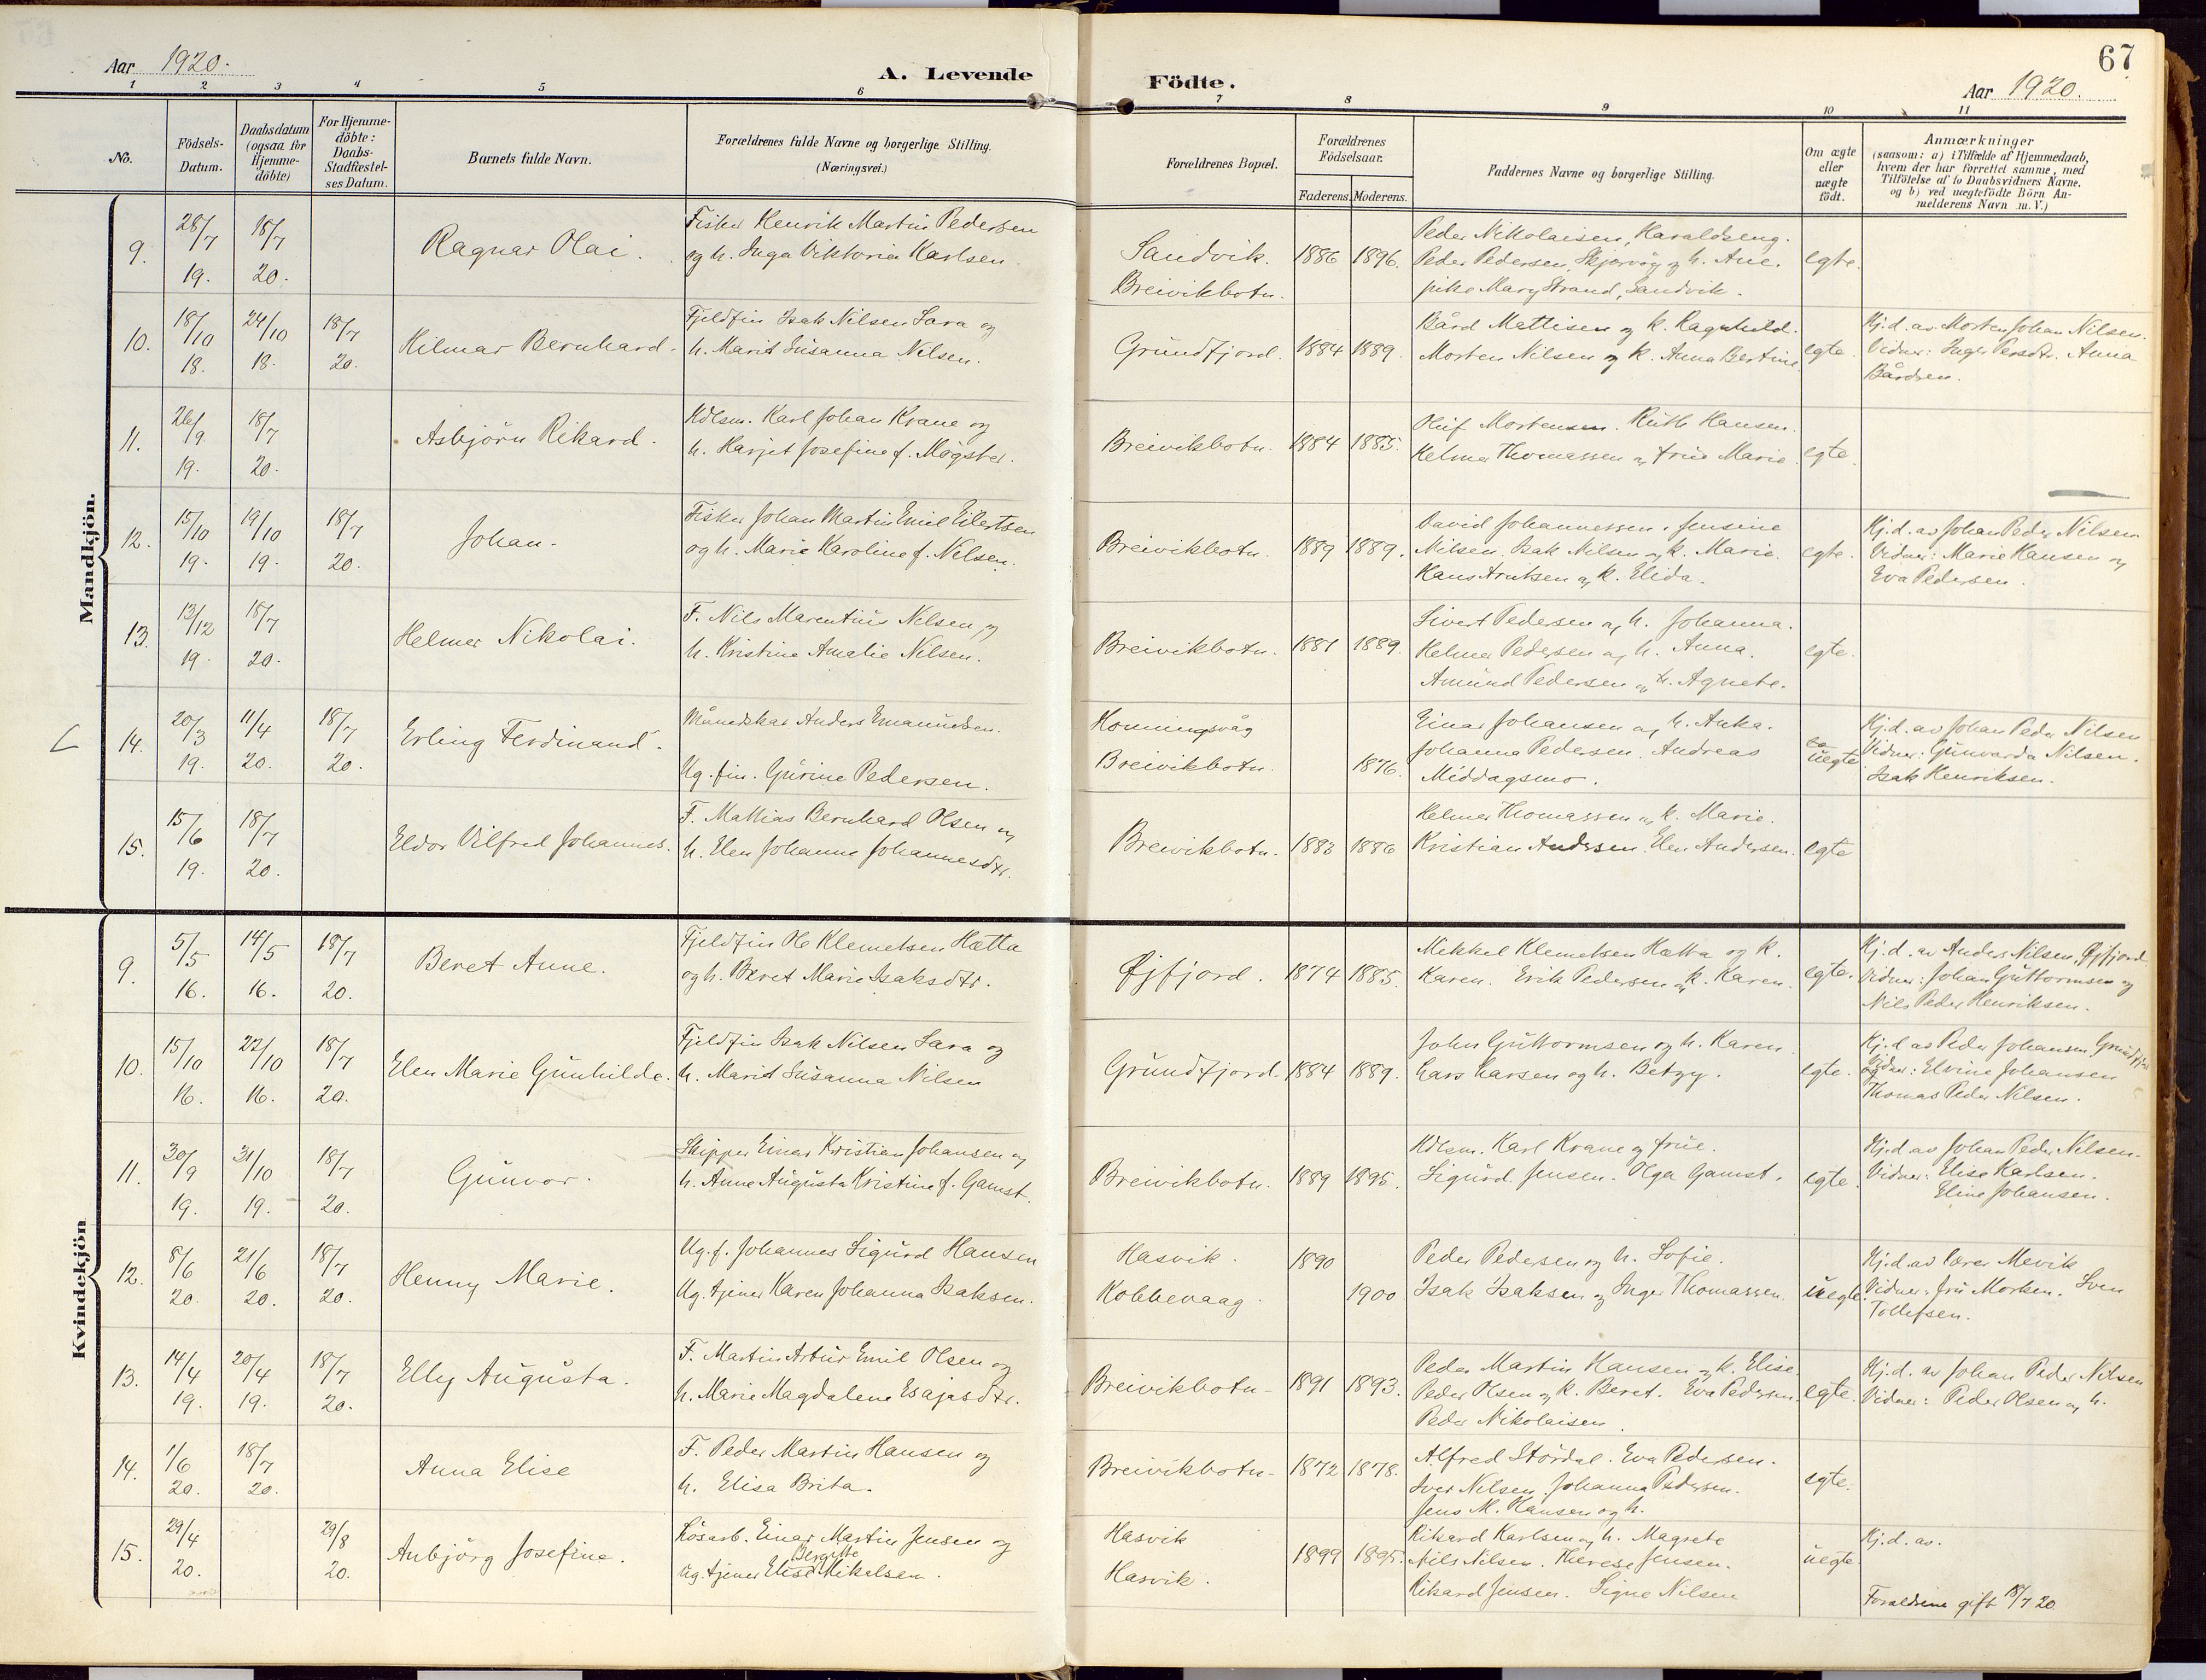 67
Aar 1920.
A. Levende Födte.
Aar 1920.
1 2 3 4 5 6 7 8 9 10 11
No.
Födsels-
Datum.
Daabsdatum
(ogsaa for
Hjemme-
döbte)
For Hjemme-
döbte:
Daabs-
Stadfæstel-
ses Datum.
Barnets fulde Navn.
Forældrenes fulde Navne og borgerlige Stilling.
(Næringsvei.)
Forældrenes Bopæl.
Forældrenes
Födselsaar.
Faderens. Moderens.
Faddernes Navne og borgerlige Stilling.
Om ægte
eller
uægte
födt.
Anmærkninger
(saasom: a) i Tilfælde af Hjemmedaab,
hvem der har forrettet samme, med
Tilföielse af to Daabsvidners Navne.
og b) ved uægtefödte Börn An-
melderens Navn m. V.)
Mandkjön.
9.
28/7
19.
18/7
20.
Ragnar Olai.
Fisker Henrik Martin Pedersen
og h. Inga Viktoria Karlsen.
Sandvik.
Breivikbotn.
1886
1896.
Peder Nikolaisen, Haraldseng.
Peder Pedersen, Skjarvåg og h. Ane.
pike Mary Strand, Sandvik.
egte.
10.
18/10
18.
24/10
18.
18/7
20.
Hilmar Bernhard.
Fjeldfin Isak Nilsen Sara og
h. Marit Susanna Nilsen.
Grundfjord.
1884
1889.
Bård Mattisen og k. Ragnhild.
Morten Nilsen og k. Anna Bertine.
egte.
Hj.d. av Morten Johan Nilsen.
Vidner: Inger Persdtr. Anna
Bårdsen.
11.
26/9
19.
18/7
20.
Asbjörn Rikard.
Hdlsm. Karl Johan Krane og
h. Harjet Josefine f. Møgster.
Breivikbotn.
1884
1885.
Oluf Mortensen. Ruth Hansen.
Helmer Thomassen og frue Marie.
egte.
12.
15/10
19.
19/10
19.
18/7
20.
Johan.
Fisker Johan Martin Emil Eilertsen
og h. Marie Karoline f. Nilsen.
Breivikbotn.
1889
1889.
David Johannessen. Jensine
Nilsen. Isak Nilsen og k. Marie.
Hans Arntsen og k. Elida.
egte.
Hj.d. av Johan Peder Nilsen
Vidner: Marie Hansen og
Eva Pedersen.
13.
13/12
19.
18/7
20.
Helmer Nikolai.
F. Nils Marentius Nilsen og
h. Kristine Amalie Nilsen.
Breivikbotn.
1881
1889.
Sivert Pedersen og h. Johanna.
Helmer Pedersen og h. Anna.
Amund Pedersen og h. Agnete.
egte.
14.
20/3
19.
11/4
20.
18/7
20.
Erling Ferdinand.
Månedskar Anders Emanuelsen.
Ug. fin. Gurine Pedersen.
Honningsvåg
Breivikbotn.
1876.
Einar Johansen og h. Anka.
Johanna Pedersen. Andreas
Middagsmo.
uegte
Hj.d. av Johan Peder Nilsen
Vidner: Gunvarda Nilsen.
Isak Henriksen.
15.
15/6
19.
18/7
20.
Eldor Vilfred Johannes.
F. Mathias Bernhard Olsen og
h. Elen Johanne Johannesdtr.
Breivikbotn.
1883
1886
Helmer Thomassen og k. Marie.
Kristian Andersen. Elen Andersen.
egte
Kvindekjön
9.
5/5
16.
14/5
16.
18/7
20.
Beret Anne.
Fjeldfin Ole Klemetsen Hætta
og h. Beret Marie Isaksdtr.
Øjfjord.
1874
1885.
Mikkel Klemetsen Hætta og k.
Karen. Erik Pedersen og k. Karen.
egte.
Hj.d. av Anders Nilsen, Øjfjord.
Vidner: Johan Guttormsen og
Nils Peder Henriksen.
10.
15/10
16.
22/10
16.
18/7
20.
Elen Marie Gunhilde.
Fjeldfin Isak Nilsen Sara og
h. Marit Susanna Nilsen
Grundfjord.
1884
1889.
John Guttormsen og h. Karen.
Lars Larsen og h. Betzy.
egte.
Hj.d. av Peder Johansen, Grundfjord
Vidner: Elvine Johansen
og Thomas Peder Nilsen.
11.
30/9
19.
31/10
19.
18/7
20.
Gunvor.
Skipper Einar Kristian Johansen og
h. Anne Augusta Kristine f. Gamst.
Breivikbotn.
1889
1895.
Hdlsm. Karl Krane og frue.
Sigurd Jensen. Olga Gamst.
egte.
Hj.d. av Johan Peder Nilsen.
Vidner: Elise Karlsen.
Eline Johansen.
12.
8/6
20.
21/6
20.
18/7
20.
Henny Marie.
Ug.f. Johannes Sigurd Hansen
Ug. tjener Karen Johanna Isaksen.
Hasvik.
Kobbevaag.
1890
1900
Peder Pedersen og h. Sofie.
Isak Isaksen og Inger Thomassen.
uegte.
Hj.d. av lærer Mevik
Vidner: fru Morken. Sven
Tollefsen.
13.
14/4
19.
20/4
19.
18/7
20.
Elly Augusta.
F. Martin Artur Emil Olsen og
h. Marie Magdalene Esajasdtr.
Breivikbotn.
1891
1893.
Peder Martin Hansen og k. Elise.
Peder Olsen og k. Beret. Eva Pedersen.
Peder Nikolaisen.
egte.
Hj.d. av Johan Peder Nilsen
Vidner: Peder Olsen og h.
14.
1/6
20.
18/7
20.
Anna Elise
F. Peder Martin Hansen og
h. Elisa Brita.
Breivikbotn.
1872
1878.
Alfred Stördal. Eva Pedersen.
Iver Nilsen. Johanna Pedersen.
Jens M. Hansen og h.
egte.
15.
29/4
20.
29/8
20.
Anbjörg Josefine.
Lösarb. Einar Martin Jensen og
Bergitte
ug. tjener Elise Mikelsen.
Hasvik
Hasvik.
1899
1895.
Rikard Karlsen og h. Magrete
Nils Nilsen. Therese Jensen.
Rikard Jensen. Signe Nilsen
uegte.
Hj.d. av.
Forældrene gift 18/7 20.